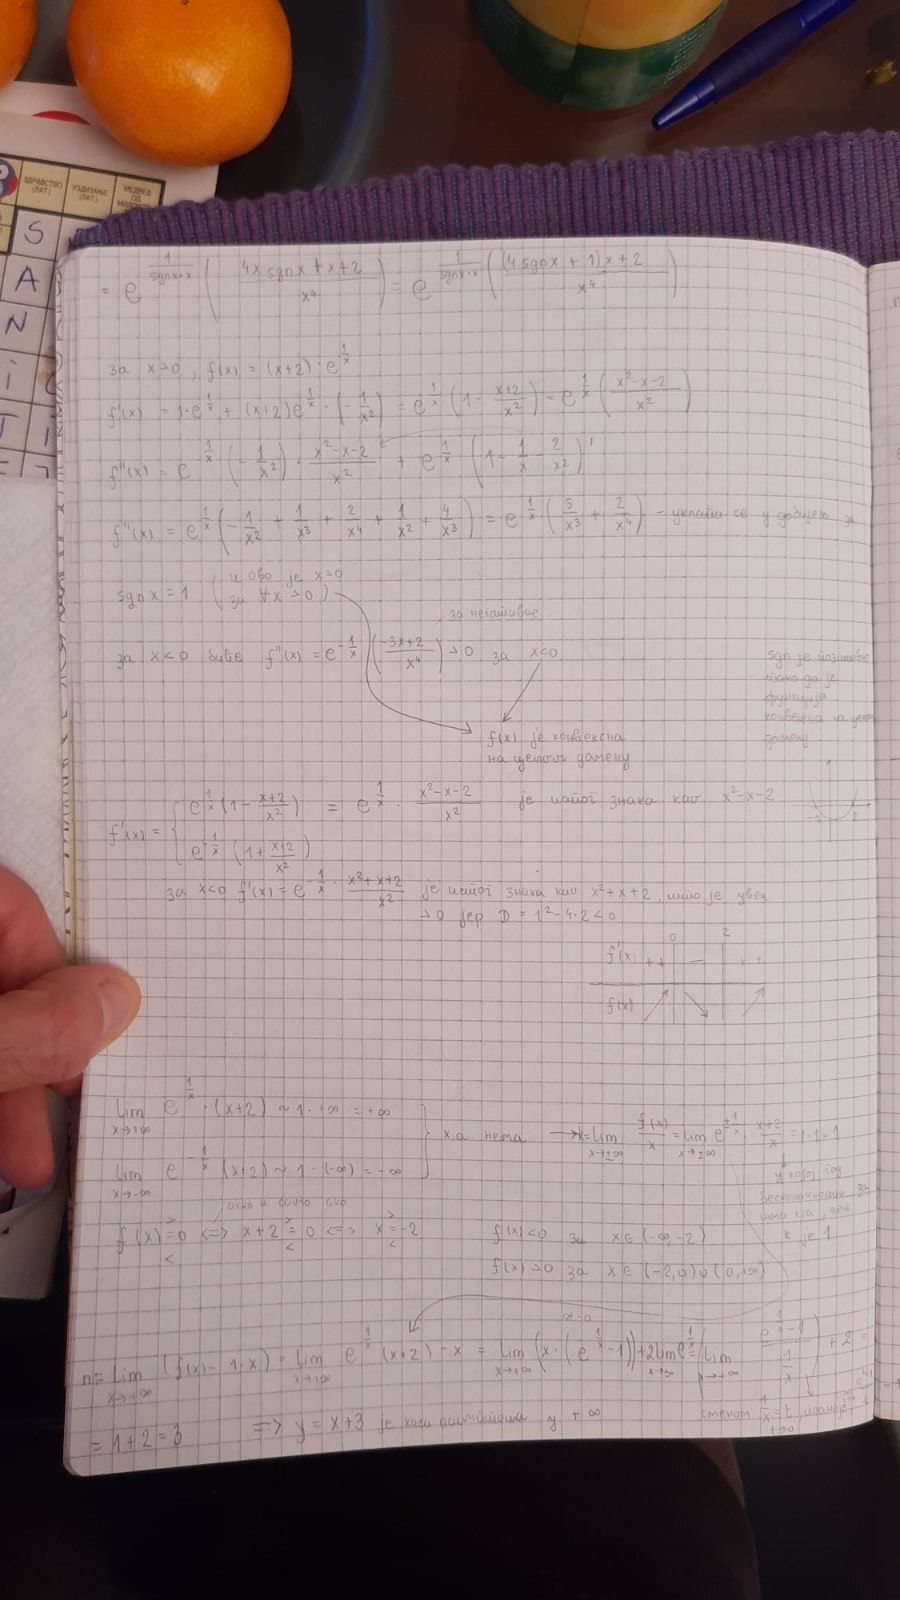 ЗДРАВСТВО (ЛАТ.)
УЗДИЗАЊЕ (ЛАТ.)
МЕДВЕД ОД
S
A
N
i
= e^{1/(sgnx·x)} ( (4x sgnx + x + 2)/x⁴ ) = e^{1/(sgnx·x)} ( ((4 sgnx + 1)x + 2)/x⁴ )
за x>0, f(x) = (x+2)·e^{1/x}
f'(x) = 1·e^{1/x} + (x+2)e^{1/x}·(-1/x²) = e^{1/x} (1 - (x+2)/x²) = e^{1/x} ( (x²-x-2)/x² )
f''(x) = e^{1/x} (-1/x²) · (x²-x-2)/x² + e^{1/x} (1 - 1/x - 2/x²)'
f''(x) = e^{1/x} (-1/x² + 1/x³ + 2/x⁴ + 1/x² + 4/x³) = e^{1/x} (5/x³ + 2/x⁴) - уклапа се у добијено за
sgn x = 1 ( и ово је x>0 за ∀x>0 )
за негативне
за x<0 биће f''(x) = e^{-1/x} ( (-3x+2)/x⁴ ) >0 за x<0
f(x) је конвексна
на целом домену
sgn је
тако да је
функција
конвексна на целом
домену
f'(x) = { e^{1/x} (1 - (x+2)/x²) = e^{1/x} · (x²-x-2)/x² је истог знака као x²-x-2
e^{-1/x} (1 + (x+2)/x²)
за x<0 f'(x) = e^{-1/x} · (x²+x+2)/x² је истог знака као x²+x+2, што је увек
>0 јер D = 1²-4·2<0
0 2
f'(x) ++ - ++
f(x)
lim x→+∞ e^{1/x}·(x+2) ~ 1·+∞ = +∞
х.а нема → k = lim x→±∞ f(x)/x = lim x→±∞ e^{±1/x} · (x+2)/x = 1·1 = 1
lim x→-∞ e^{-1/x} (x+2) ~ 1·(-∞) = -∞
у којој год
бесконачности
k је 1
акко и само ако
f(x) >=< 0 <=> x+2 >=< 0 <=> x >=< -2
f(x)<0 за x∈(-∞,-2)
f(x)>0 за x∈(-2,0)∪(0,+∞)
n = lim x→+∞ (f(x)-1·x) = lim x→+∞ e^{1/x} (x+2) - x = lim x→+∞ (x·(e^{1/x}-1)) + 2 lim x→∞ e^{1/x} = ( lim x→+∞ (e^{1/x}-1)/(1/x) ) + 2 =
сменом 1/x = t
= 1+2 = 3 => y = x+3 је коса асимптота у +∞